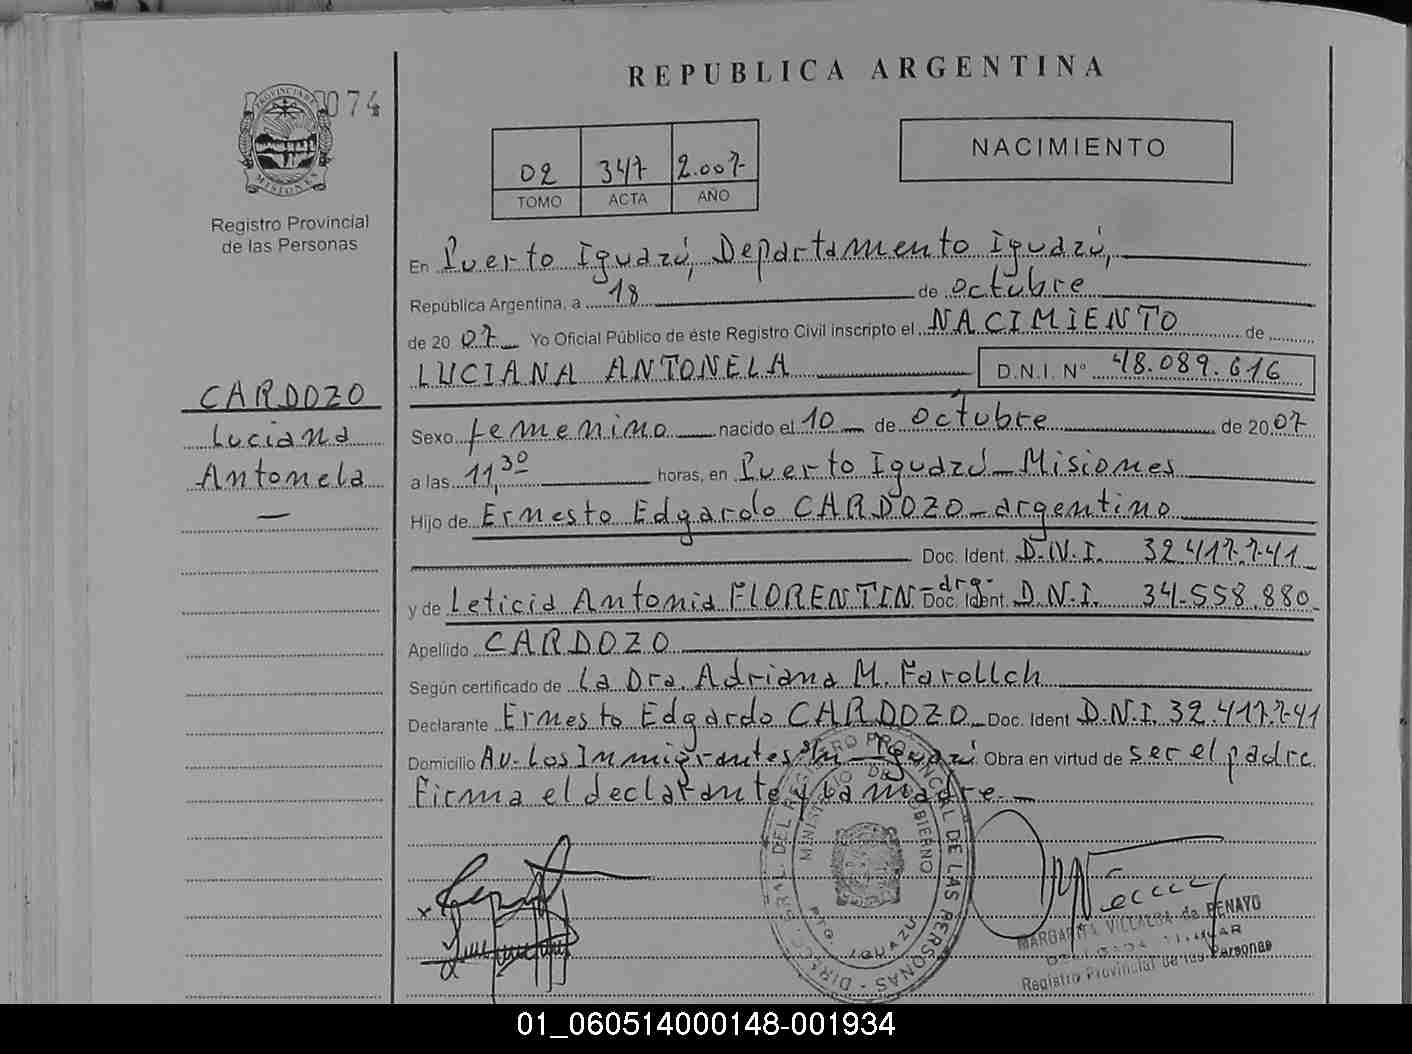 REPUBLICA ARGENTINA
074
PROVINCIA DE
MISIONES
Registro Provincial
de las Personas
02 347 2.007
TOMO ACTA AÑO
NACIMIENTO
En Puerto Iguazú, Departamento Iguazú,
República Argentina, a 18 de octubre
de 20 07 Yo Oficial Público de éste Registro Civil inscripto el NACIMIENTO de
LUCIANA ANTONELA D.N.I. N° 48.089.616
CARDOZO
Luciana
Antonela
Sexo femenino nacido el 10 de octubre de 20 07
a las 11,30 horas, en Puerto Iguazú - Misiones
Hijo de Ernesto Edgardo CARDOZO - argentino
Doc. Ident. D.N.I. 32.417.741
y de Leticia Antonia FLORENTIN - arg- Doc. Ident. D.N.I. 34.558.880
Apellido CARDOZO
Según certificado de La Dra. Adriana M.
Declarante Ernesto Edgardo CARDOZO Doc. Ident D.N.I. 32.417.741
Domicilio Av- Los Inmigrantes s/n - Iguazú Obra en virtud de ser el padre
Firma el declarante y la madre.
DEL REGISTRO PROVINCIAL DE LAS PERSONAS
MINISTERIO DE GOBIERNO
PTO. IGUAZU
MARGARITA VILLALBA de BENAYO
DELEGADA TITULAR
Registro Provincial de las Personas
01_060514000148-001934